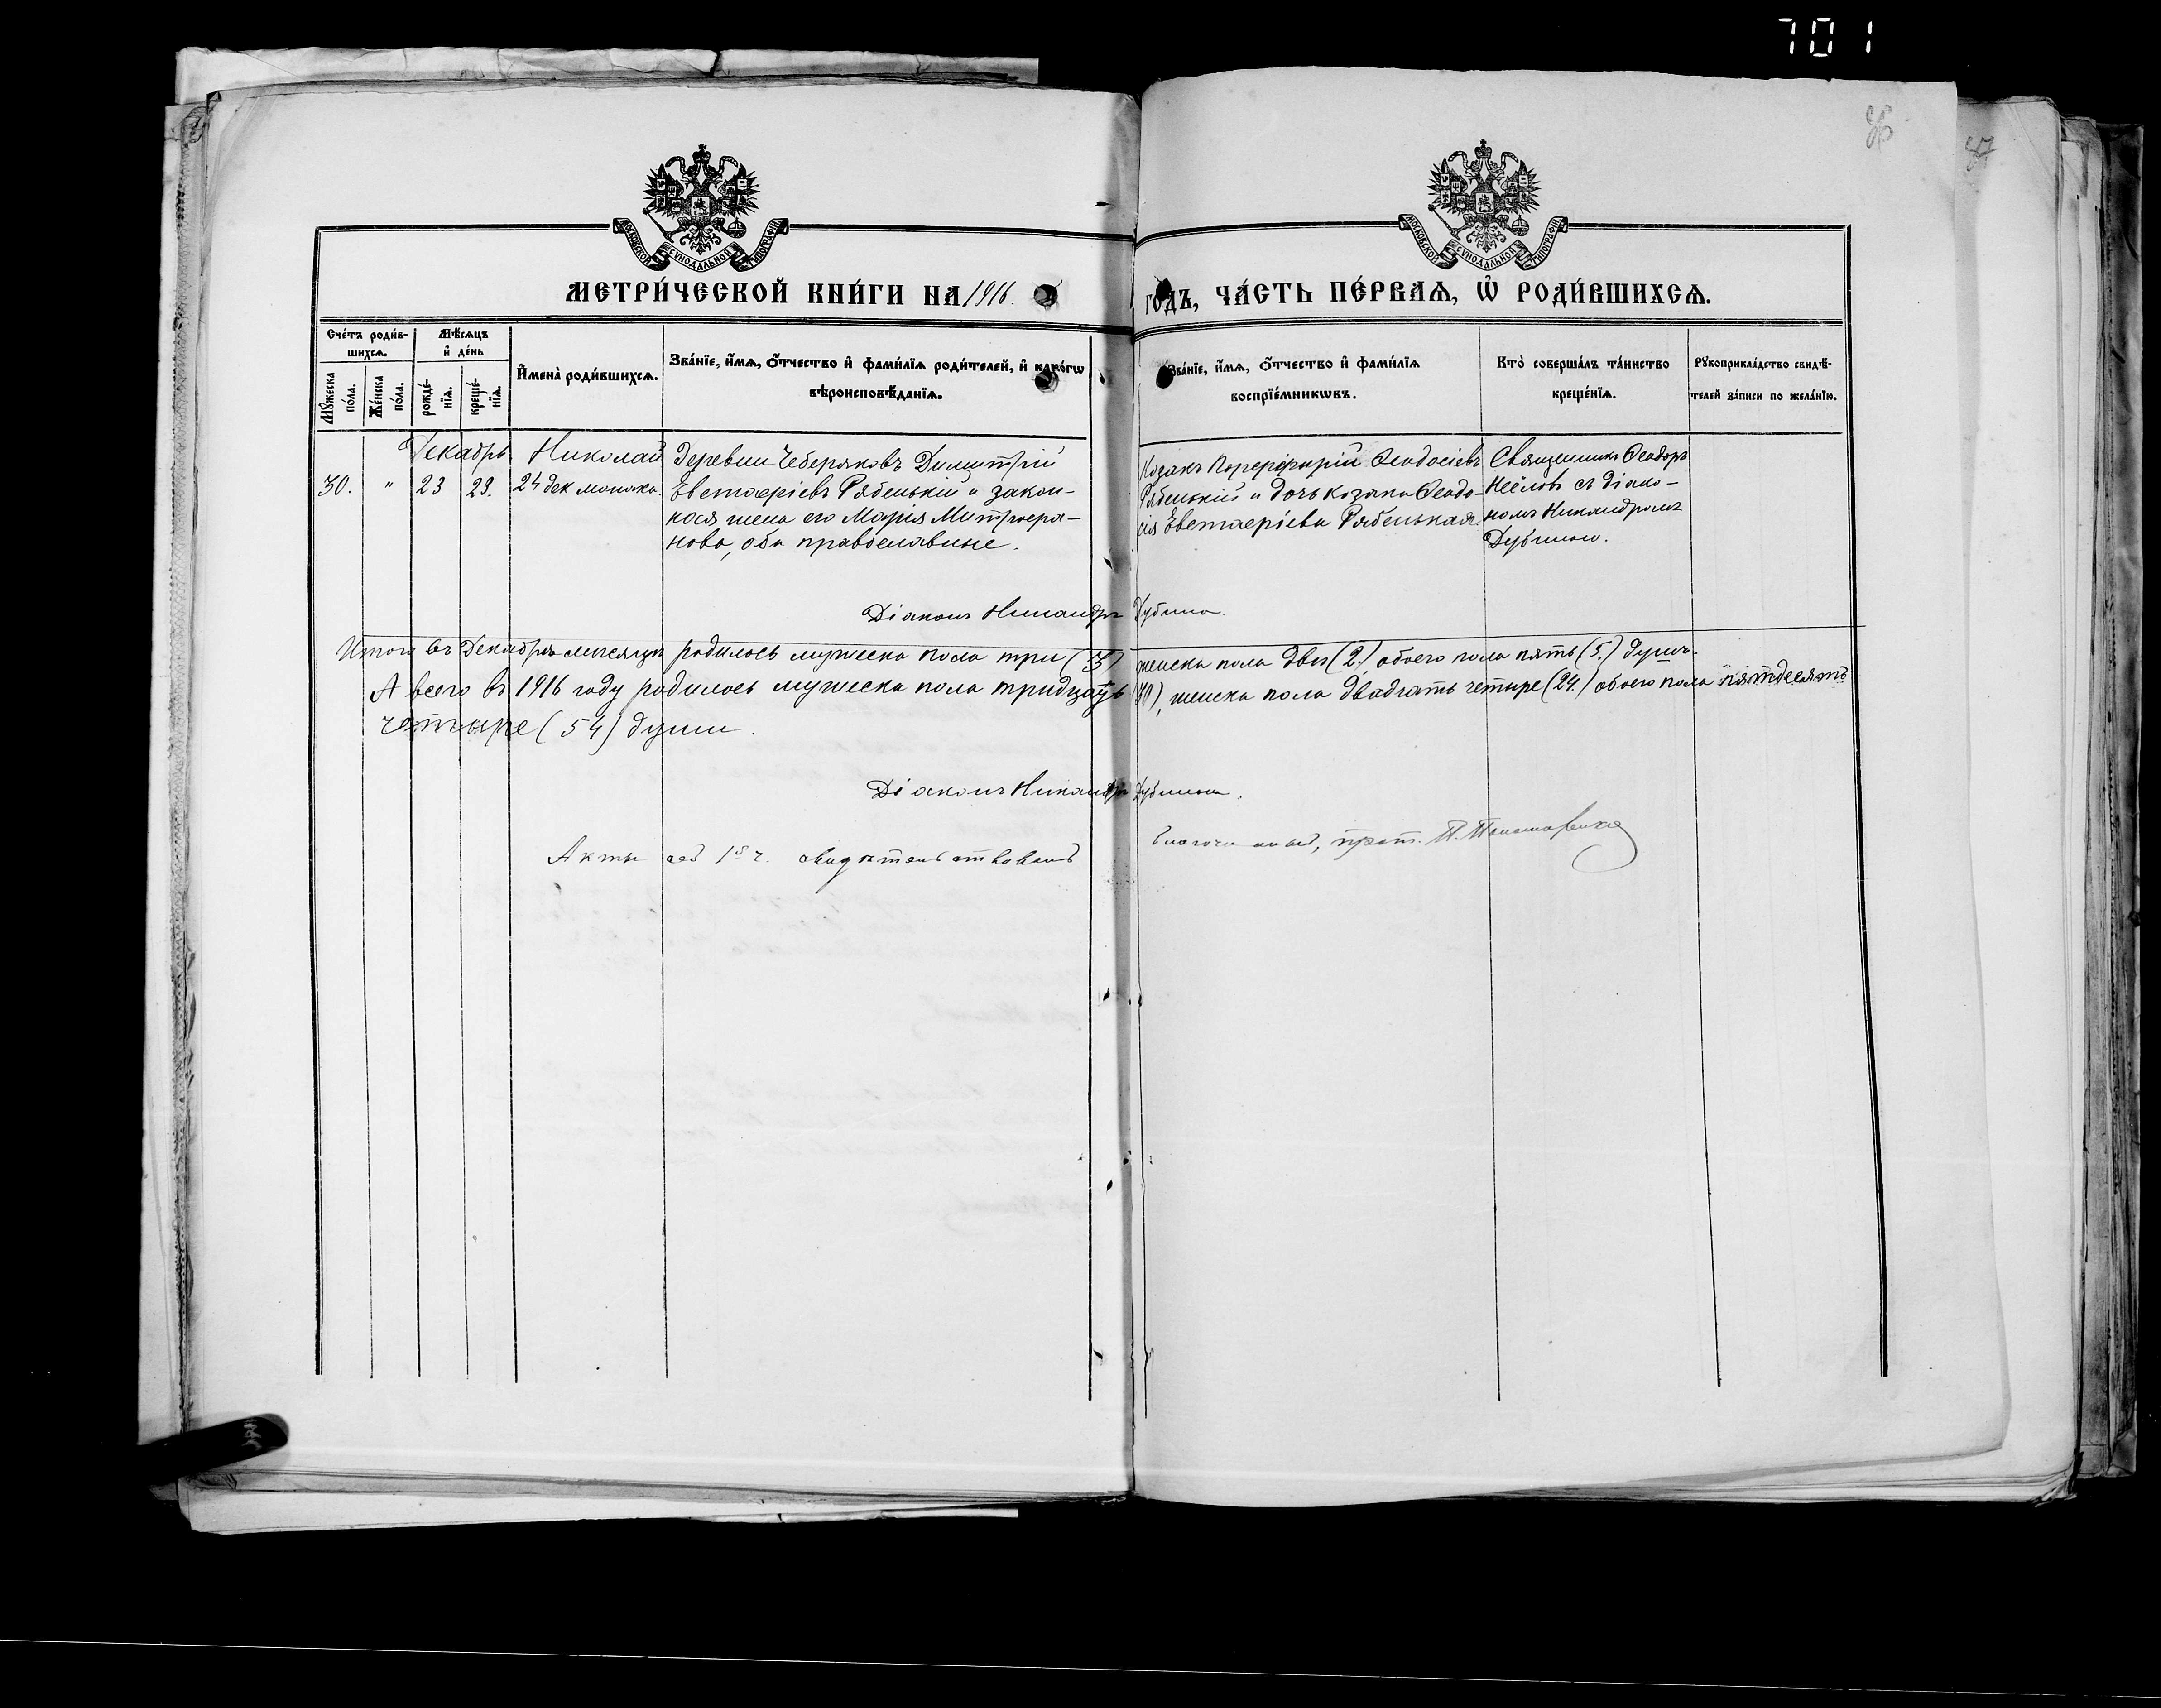 701
36
37
МОСКОВСКОЙ СУНОДАЛЬНОЙ ТИПОГРАФІИ
МОСКОВСКОЙ СУНОДАЛЬНОЙ ТИПОГРАФІИ
МЕТРИ́ЧЕСКОЙ КНИ́ГИ НА 1916.
ГО́ДЪ, ЧА́СТЬ ПЕ́РВАѦ, Ѡ҆ РОДИ́ВШИХСѦ.
Сче́тъ роди́в-
шихсѧ.
Мꙋ́жеска по́ла.
Же́нска по́ла.
Мѣ́сѧцъ
и҆ де́нь
рожде́-нїѧ.
креще́-нїѧ.
И҆мена̀ роди́вшихсѧ.
Зва́нїе, и҆́мѧ, ѻ҆́тчество и҆ фами́лїѧ роди́телей, и҆ како́гѡ
вѣроисповѣ́данїѧ.
Зва́нїе, и҆́мѧ, ѻ҆́тчество и҆ фами́лїѧ
воспрїе́мникѡвъ.
Кто̀ соверша́лъ та́инство
креще́нїѧ.
Рꙋкоприкла́дство свидѣ́-
телей за́писи по жела́нїю.
Декабрь
30. " 23 23.
Николай
24 дек монаха.
Деревни Чеберяковъ Димитрій
Евстафіевъ Рябенькій и закон-
ная жена его Марія Митрофа-
нова, оба православные.
Козакъ Порфирій Феодосіевъ
Рябенькій и дочь козака Феодо-
сія Евстафіева Рябенькая.
Священникъ Феодоръ
Неёловъ съ діако-
номъ Никандромъ
Дубиною.
Діаконъ Никандръ Дубина.
Итого въ Декабрѣ мѣсяцѣ родилось мужеска пола три (3) женска пола двѣ (2.) обоего пола пять (5.) душъ.
А всего въ 1916 году родилось мужеска пола тридцать (30), женска пола двадцать четыре (24.) обоего пола пятдесятъ
четыре (54) души.
Діаконъ Никандръ Дубина.
Акты сей 1й ч. свидѣтельствовалъ
Благочинный, прот.